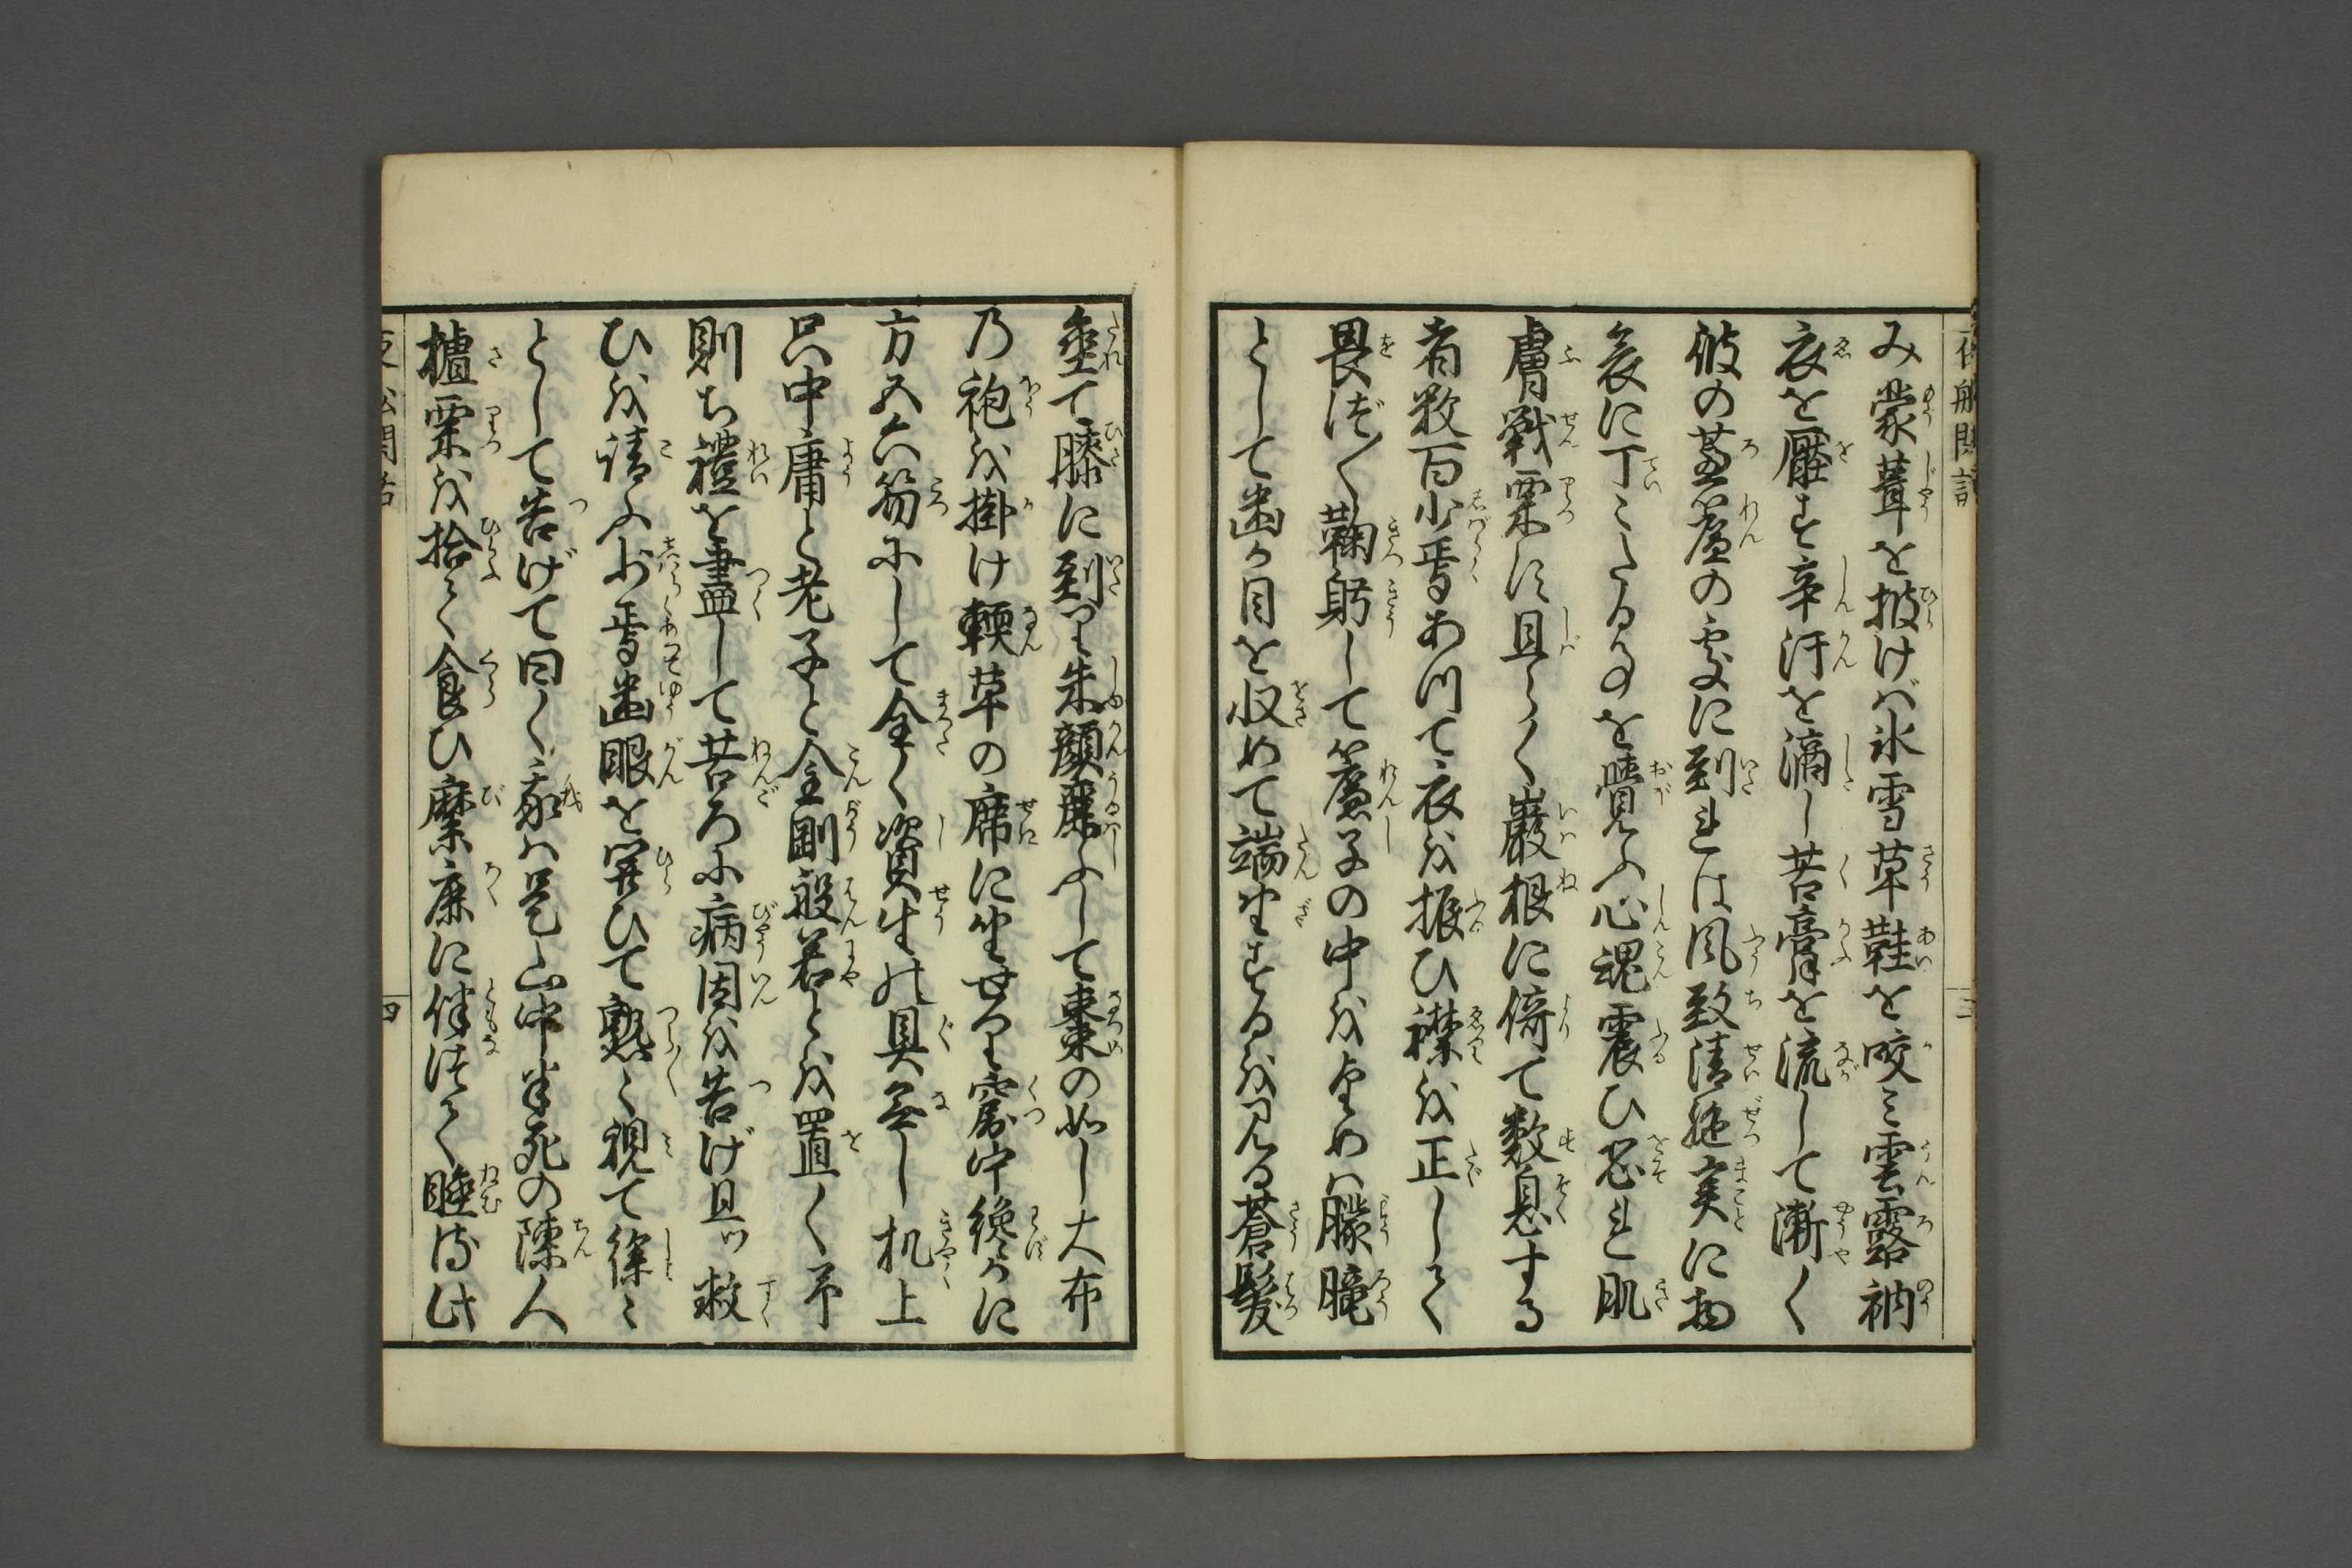 み蒙茸を披けば氷雪草鞋を咬ミ雲露衲
衣を壓す辛汗を滴し苦膏を流して漸く
彼の蘆簾の処に到れは風致清絶実に物
表に丁こたる事を覚ふ心魂震ひ恐れ肌
膚戰栗す且らく巖根に倚て数息する
者数百少焉あつて衣を振ひ襟を正して
畏づ〳〵鞠躬して簾子の中を望めは朦朧
として歯か目を収めて端坐するを見る蒼髮
垂て膝に到り朱顔麗ふして棗の如し大布
乃袍を掛け輭草の席に坐せり窟中纔かに
方五六笏にして全く資生の具無し机上
只中庸と老子と金剛般若とを置く予
則ち禮を盡して苦ろに病因を告げ且ッ救
ひを請ふ少焉歯眼を開ひて熟〻視て徐〻
として告げて曰く我は是山中半死の陳人
樝栗を拾て食ひ麋鹿に伴て睡る此
夜船閑話
三
夜船閑話
四